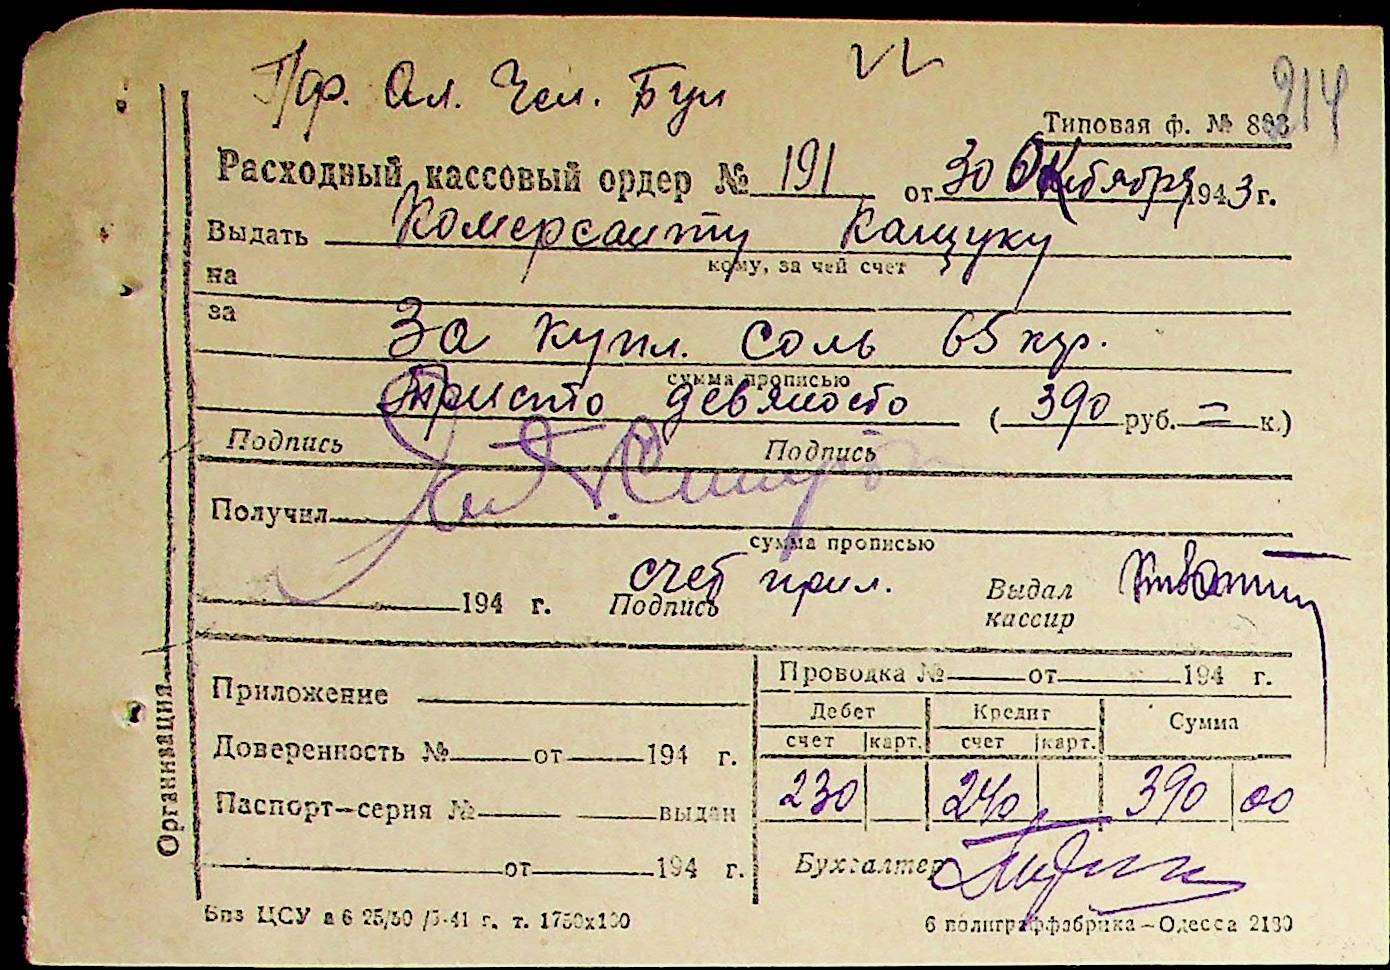 214
Типовая ф. № 868
Расходный кассовый ордер № 191 от 30 Октября 1943 г.
Выдать Комерсанту Кащуку
кому, за чей счет
на
за
За купл. соль 65 кгр.
сумма прописью
триста девяносто ( 390 руб. = к.)
Подпись Подпись
Получил
сумма прописью
счет прил.
194 г. Подпись Выдал
кассир
Организация
Приложение
Доверенность № от 194 г.
Паспорт-серия № выдан
от 194 г.
Проводка № от 194 г.
Дебет Кредит Сумма
счет карт. счет карт.
230 240 390 00
Бухгалтер
6 полиграффабрика – Одесса 2180